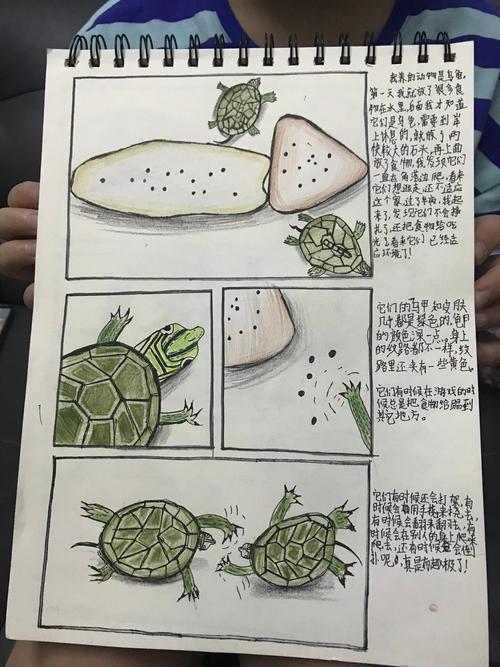 我养的动物是乌龟,
第一天我就放了很多食
物在水里,后面我才知道
它们是乌龟,需要到岸
上休息的,就放了两
块较大的石头,再上面
放了食物,我发现它们
一直在角落边爬,看来
它们想逃走,还不适应
这个家,过了半晌,我起
来了,发现它们不会挣
扎了,还把食物给吃
光了看来它们已然适
应环境了!
它们的马甲和皮肤
几乎都是绿色的,龟甲
的颜色深一点。身上
的纹路都不一样,纹
路里还夹有一些黄色。
它们有时候在游戏的时
候总是把食物给踢到
其它地方。
它们有时候还会打架,有
时候会用手抓来抓去,
有时候会翻来翻去,有
时候会在别人的身上爬来
爬去,还有时候会倒
下呢,真是有趣极了!